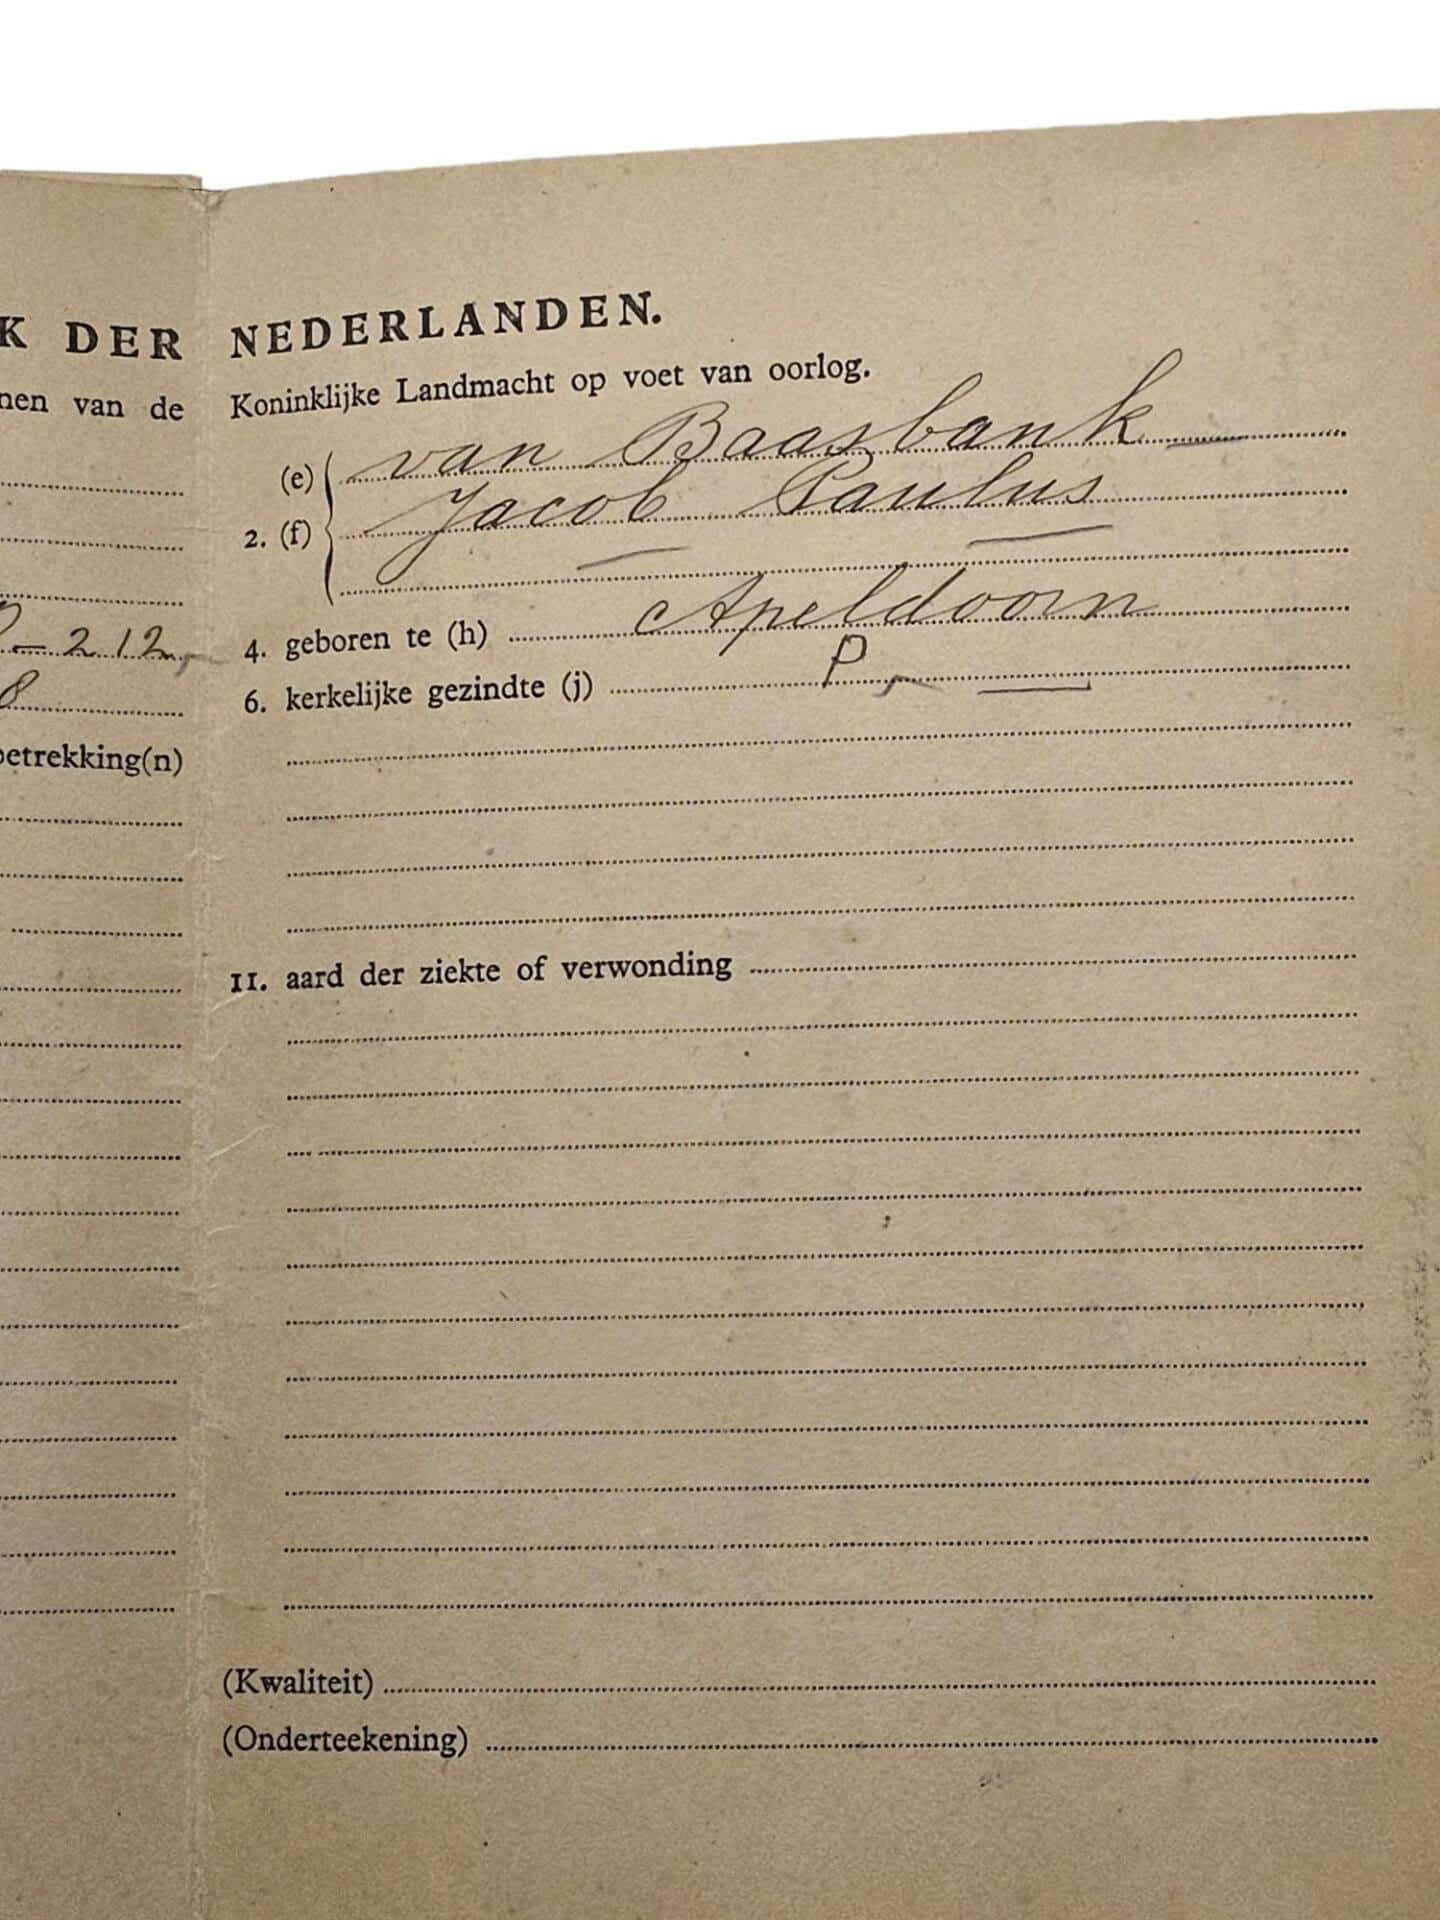 K DER NEDERLANDEN.
nen van de Koninklijke Landmacht op voet van oorlog.
(e) van Baasbank
2. (f) Jacob Paulus
- 212, 4. geboren te (h) Apeldoorn
8 6. kerkelijke gezindte (j) P.
betrekking(n)
11. aard der ziekte of verwonding
(Kwaliteit)
(Onderteekening)